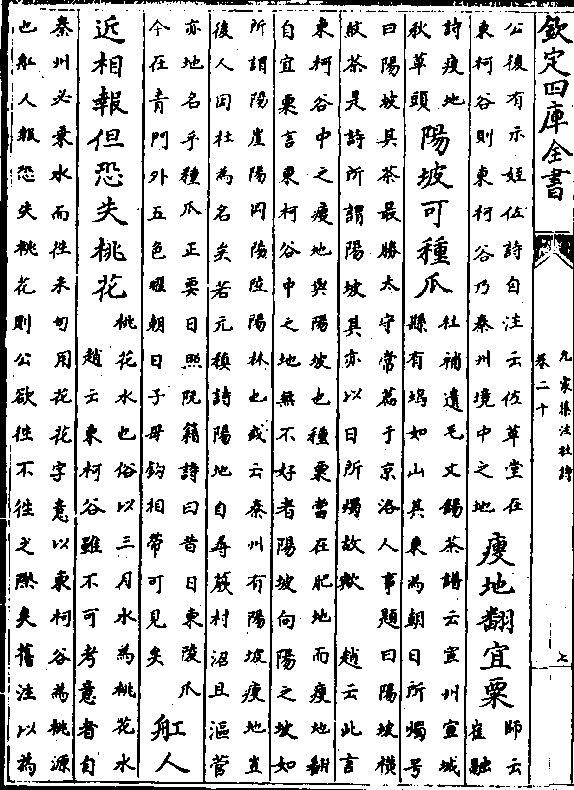 欽定四庫全書
九家集注杜詩
卷二十
七
公後有示姪佐詩自注云佐草堂在
東柯谷則東柯谷乃秦州境中之地
瘦地翻宜粟
師云
崔融
詩瘦地
秋草頭
陽坡可種瓜
杜補遺毛文錫茶譜云宣州宣城
縣有塢如山其東為朝日所燭号
曰陽坡其茶最勝太守常薦于京洛人事題曰陽坡橫
紋茶是詩所謂陽坡其亦以日所燭故歟 趙云此言
東柯谷中之瘦地與陽坡也種粟當在肥地而瘦地翻
自宜粟言東柯谷中之地無不好者陽坡向陽之坡如
所謂陽崖陽岡陽陸陽林也或云秦州有陽坡瘦地豈
後人因杜為名矣若元稹詩陽地自尋蕨村沼且漚菅
亦地名乎種瓜正要日照阮籍詩曰昔日東陵瓜
今在青門外五色曜朝日子母鈎相帶可見矣
舡人
近相報但恐失桃花
桃花水也俗以三月水為桃花水
趙云東柯谷雖不可考意者自
秦州必乗水而徃来句用花花字意以東柯谷為桃源
也舡人報恐失桃花則公欲徃不徃之際矣舊注以為